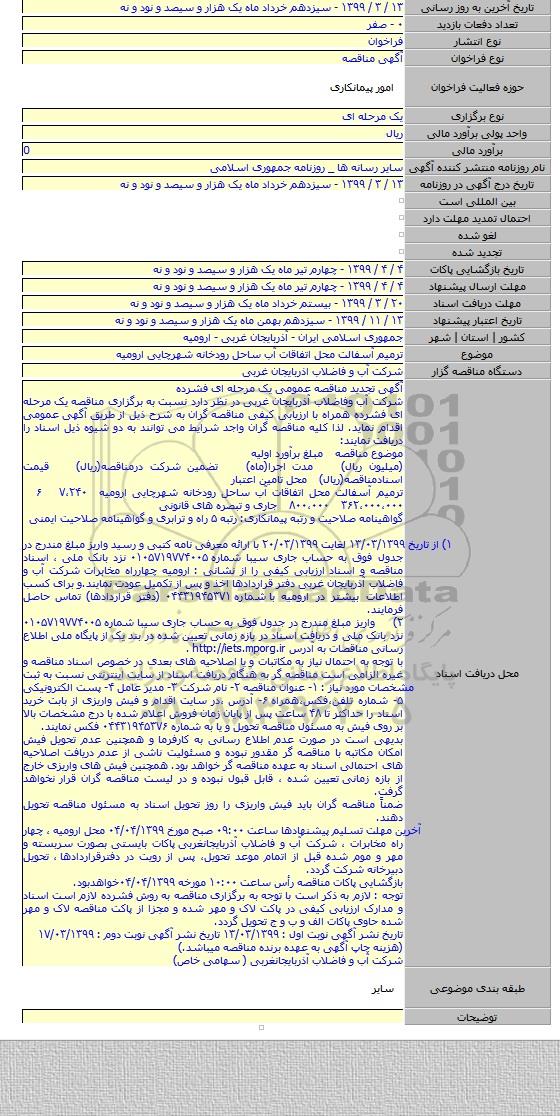 تاریخ آخرین به روز رسانی ۱۳ / ۳ / ۱۳۹۹ - سیزدهم خرداد ماه یک هزار و سیصد و نود و نه
تعداد دفعات بازدید ۰ - صفر
نوع انتشار فراخوان
نوع فراخوان آگهی مناقصه
حوزه فعالیت فراخوان امور پیمانکاری
نوع برگزاری یک مرحله ای
واحد پولی برآورد مالی ریال
برآورد مالی 0
نام روزنامه منتشر کننده آگهی سایر رسانه ها _ روزنامه جمهوری اسلامی
تاریخ درج آگهی در روزنامه ۱۳ / ۳ / ۱۳۹۹ - سیزدهم خرداد ماه یک هزار و سیصد و نود و نه
بین المللی است
احتمال تمدید مهلت دارد
لغو شده
تجدید شده
تاریخ بازگشایی پاکات ۴ / ۴ / ۱۳۹۹ - چهارم تیر ماه یک هزار و سیصد و نود و نه
مهلت ارسال پیشنهاد ۴ / ۴ / ۱۳۹۹ - چهارم تیر ماه یک هزار و سیصد و نود و نه
مهلت دریافت اسناد ۲۰ / ۳ / ۱۳۹۹ - بیستم خرداد ماه یک هزار و سیصد و نود و نه
تاریخ اعتبار پیشنهاد ۱۳ / ۱۱ / ۱۳۹۹ - سیزدهم بهمن ماه یک هزار و سیصد و نود و نه
کشور | استان | شهر جمهوری اسلامی ایران - آذربایجان غربی - ارومیه
موضوع ترمیم آسفالت محل اتفاقات آب ساحل رودخانه شهرچایی ارومیه
دستگاه مناقصه گزار شرکت آب و فاضلاب آذربایجان غربی
محل دریافت اسناد
آگهی تجدید مناقصه عمومی یک مرحله ای فشرده
شرکت آب وفاضلاب آذربایجان غربی در نظر دارد نسبت به برگزاری مناقصه یک مرحله
ای فشرده همراه با ارزیابی کیفی مناقصه گران به شرح ذیل از طریق آگهی عمومی
اقدام نماید. لذا کلیه مناقصه گران واجد شرایط می توانند به دو شیوه ذیل اسناد را
دریافت نمایند:
موضوع مناقصه مبلغ برآورد اولیه
(میلیون ریال) مدت اجرا(ماه) تضمین شرکت درمناقصه(ریال) قیمت
اسنادمناقصه(ریال) محل تامین اعتبار
ترمیم آسفالت محل اتفاقات آب ساحل رودخانه شهرچایی ارومیه ۷،۲۴۰ ۶
۳۶۲،۰۰۰،۰۰۰ ۸۰۰،۰۰۰ جاری و تبصره های قانونی
گواهینامه صلاحیت و رتبه پیمانکاری: رتبه ۵ راه و ترابری و گواهینامه صلاحیت ایمنی
۱) از تاریخ ۱۳/۰۳/۱۳۹۹ لغایت ۲۰/۰۳/۱۳۹۹ با ارائه معرفی نامه کتبی و رسید واریز مبلغ مندرج در
جدول فوق به حساب جاری سیبا شماره ۰۱۰۵۷۱۹۷۷۴۰۰۵ نزد بانک ملی ، اسناد
مناقصه و اسناد ارزیابی کیفی را از نشانی : ارومیه چهارراه مخابرات شرکت آب و
فاضلاب آذربایجان غربی دفتر قراردادها اخذ و پس از تکمیل عودت نمایند.و برای کسب
اطلاعات بیشتر در ارومیه با شماره ۰۴۴۳۱۹۴۵۳۷۱ (دفتر قراردادها) تماس حاصل
فرمایند.
۲) واریز مبلغ مندرج در جدول فوق به حساب جاری سیبا شماره ۰۱۰۵۷۱۹۷۷۴۰۰۵
نزد بانک ملی و دریافت اسناد در بازه زمانی تعیین شده در بند یک از پایگاه ملی اطلاع
رسانی مناقصات به آدرس http://iets.mporg.ir .
با توجه به احتمال نیاز به مکاتبات و یا اصلاحیه های بعدی در خصوص اسناد مناقصه و
غیره الزامی است مناقصه گر به هنگام دریافت اسناد از سایت اینترنتی نسبت به ثبت
مشخصات مورد نیاز : ۱- عنوان مناقصه ۲- نام شرکت ۳- مدیر عامل ۴- پست الکترونیکی
۵- شماره تلفن،فکس،همراه ۶- آدرس ،در سایت اقدام و فیش واریزی از بابت خرید
اسناد را حداکثر تا ۴۸ ساعت پس از پایان زمان فروش اعلام شده با درج مشخصات بالا
بر روی فیش به مسئول مناقصه تحویل و یا به شماره ۰۴۴۳۱۹۴۵۳۷۶ فکس نمایند.
بدیهی است در صورت عدم اطلاع رسانی به کارفرما و همچنین عدم تحویل فیش
امکان مکاتبه با مناقصه گر مقدور نبوده و مسئولیت ناشی از عدم دریافت اصلاحیه
های احتمالی اسناد به عهده مناقصه گر خواهد بود. همچنین فیش های واریزی خارج
از بازه زمانی تعیین شده ، قابل قبول نبوده و در لیست مناقصه گران قرار نخواهد
گرفت.
ضمناً مناقصه گران باید فیش واریزی را روز تحویل اسناد به مسئول مناقصه تحویل
دهند.
آخرین مهلت تسلیم پیشنهادها ساعت ۰۹:۰۰ صبح مورخ ۰۴/۰۴/۱۳۹۹ محل ارومیه ، چهار
راه مخابرات ، شرکت آب و فاضلاب آذربایجانغربی پاکات بایستی بصورت سربسته و
مهر و موم شده قبل از اتمام موعد تحویل، پس از رویت در دفترقراردادها ، تحویل
دبیرخانه شرکت گردد.
بازگشایی پاکات مناقصه رأس ساعت ۱۰:۰۰ مورخه ۰۴/۰۴/۱۳۹۹خواهدبود.
توجه : لازم به ذکر است با توجه به برگزاری مناقصه به روش فشرده لازم است اسناد
و مدارک ارزیابی کیفی در پاکت لاک و مهر شده و مجزا از پاکت مناقصه لاک و مهر
شده حاوی پاکات الف و ب و ج تحویل گردد.
تاریخ نشر آگهی نوبت اول : ۱۳/۰۳/۱۳۹۹ تاریخ نشر آگهی نوبت دوم : ۱۷/۰۳/۱۳۹۹
(هزینه چاپ آگهی به عهده برنده مناقصه میباشد.)
شرکت آب و فاضلاب آذربایجانغربی ( سهامی خاص)
طبقه بندی موضوعی سایر
توضیحات